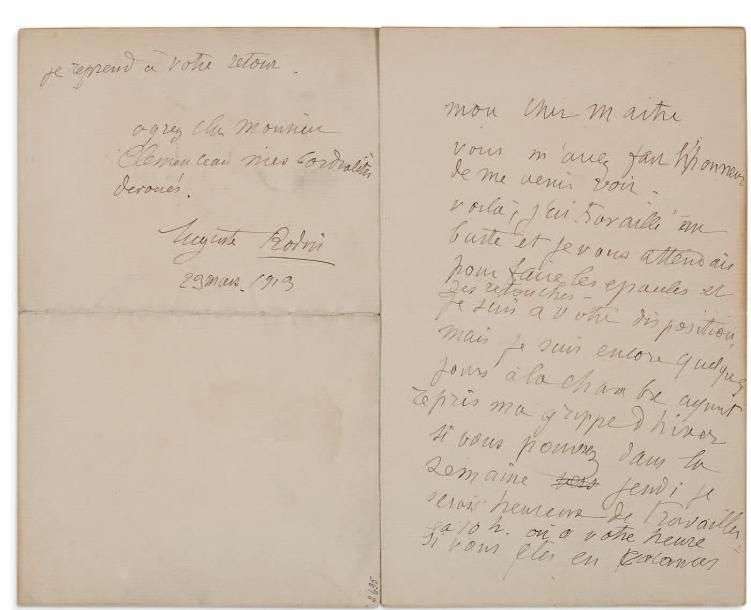 mon cher Maitre
vous m'avez fait l'honneur
de me venir voir.
voilà, j'ai travaillé au
buste et je vous attendais
pour faire les epaules et
des retouches -
je suis a votre disposition,
mais je suis encore quelques
jours à la chambre ayant
repris ma grippe d'hiver
si vous pouvez dans la
semaine vers jeudi je
serais heureux de travailler
a 10 h. ou a votre heure
si vous êtes en vacances
je reprend à votre retour.
agrez cher Monsieur
Clemenceau mes cordialités
devoués.
Auguste Rodin
29 mars 1913